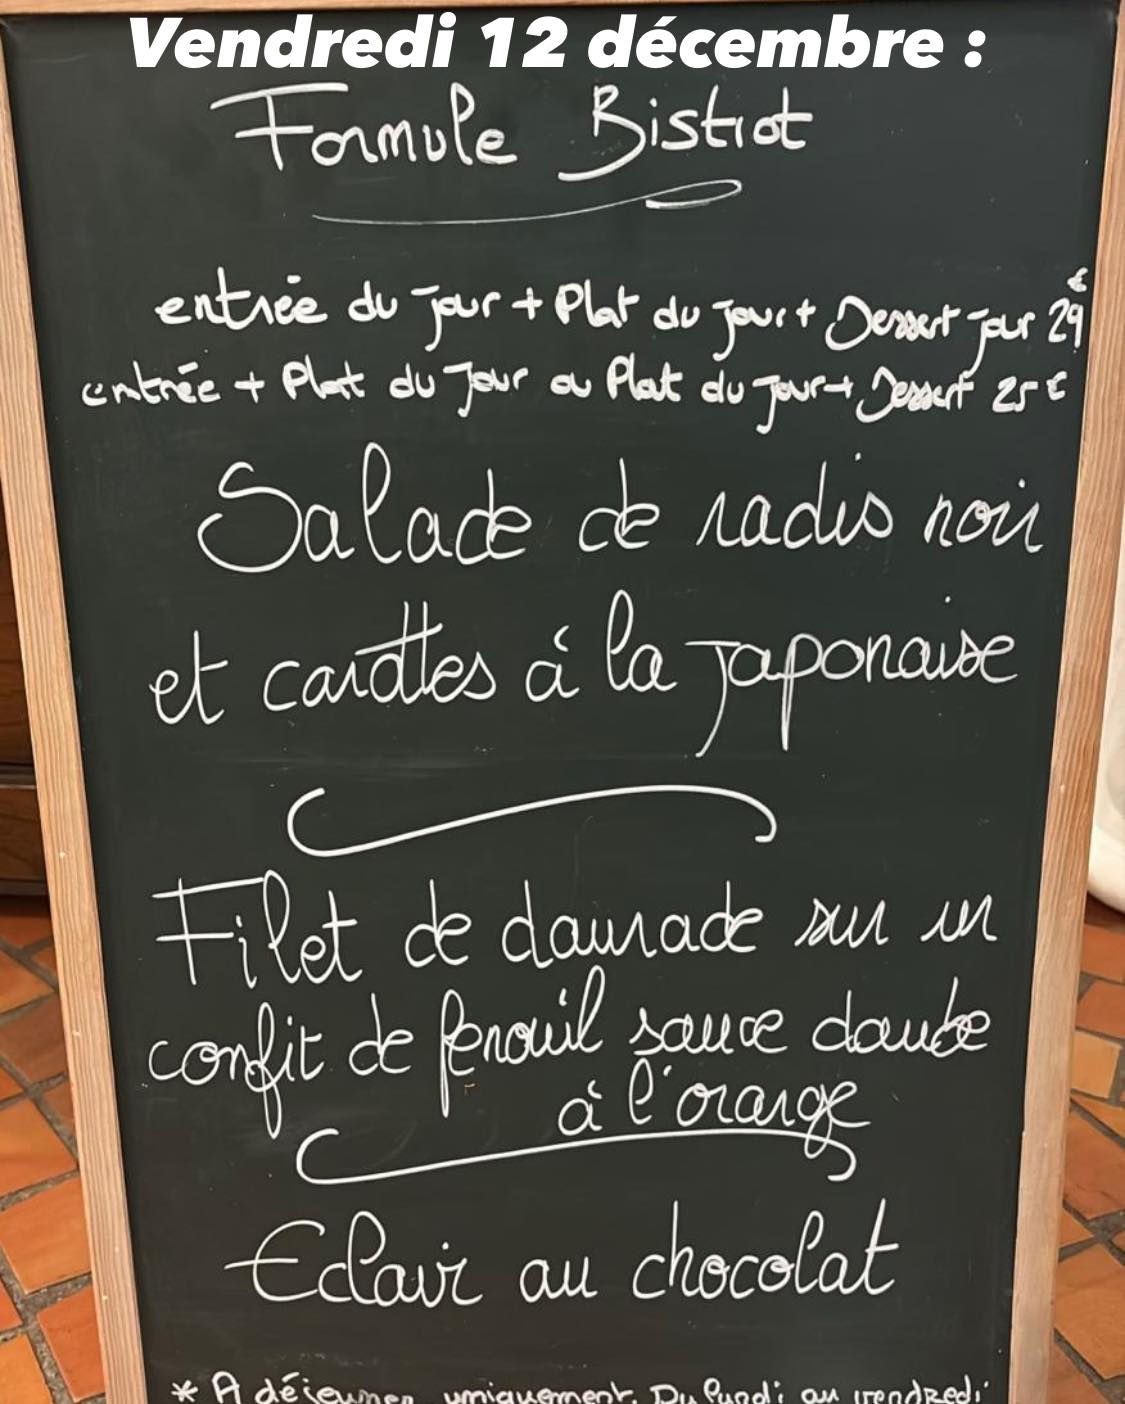 Vendredi 12 décembre :
Formule Bistrot
entrée du jour + Plat du jour + Dessert jour 29€
entrée + Plat du Jour ou Plat du jour + Dessert 25€
Salade de radis noir
et carottes à la japonaise
Filet de daurade sur un
confit de fenouil sauce daube
à l'orange
Eclair au chocolat
* A déjeuner uniquement. Du lundi au vendredi